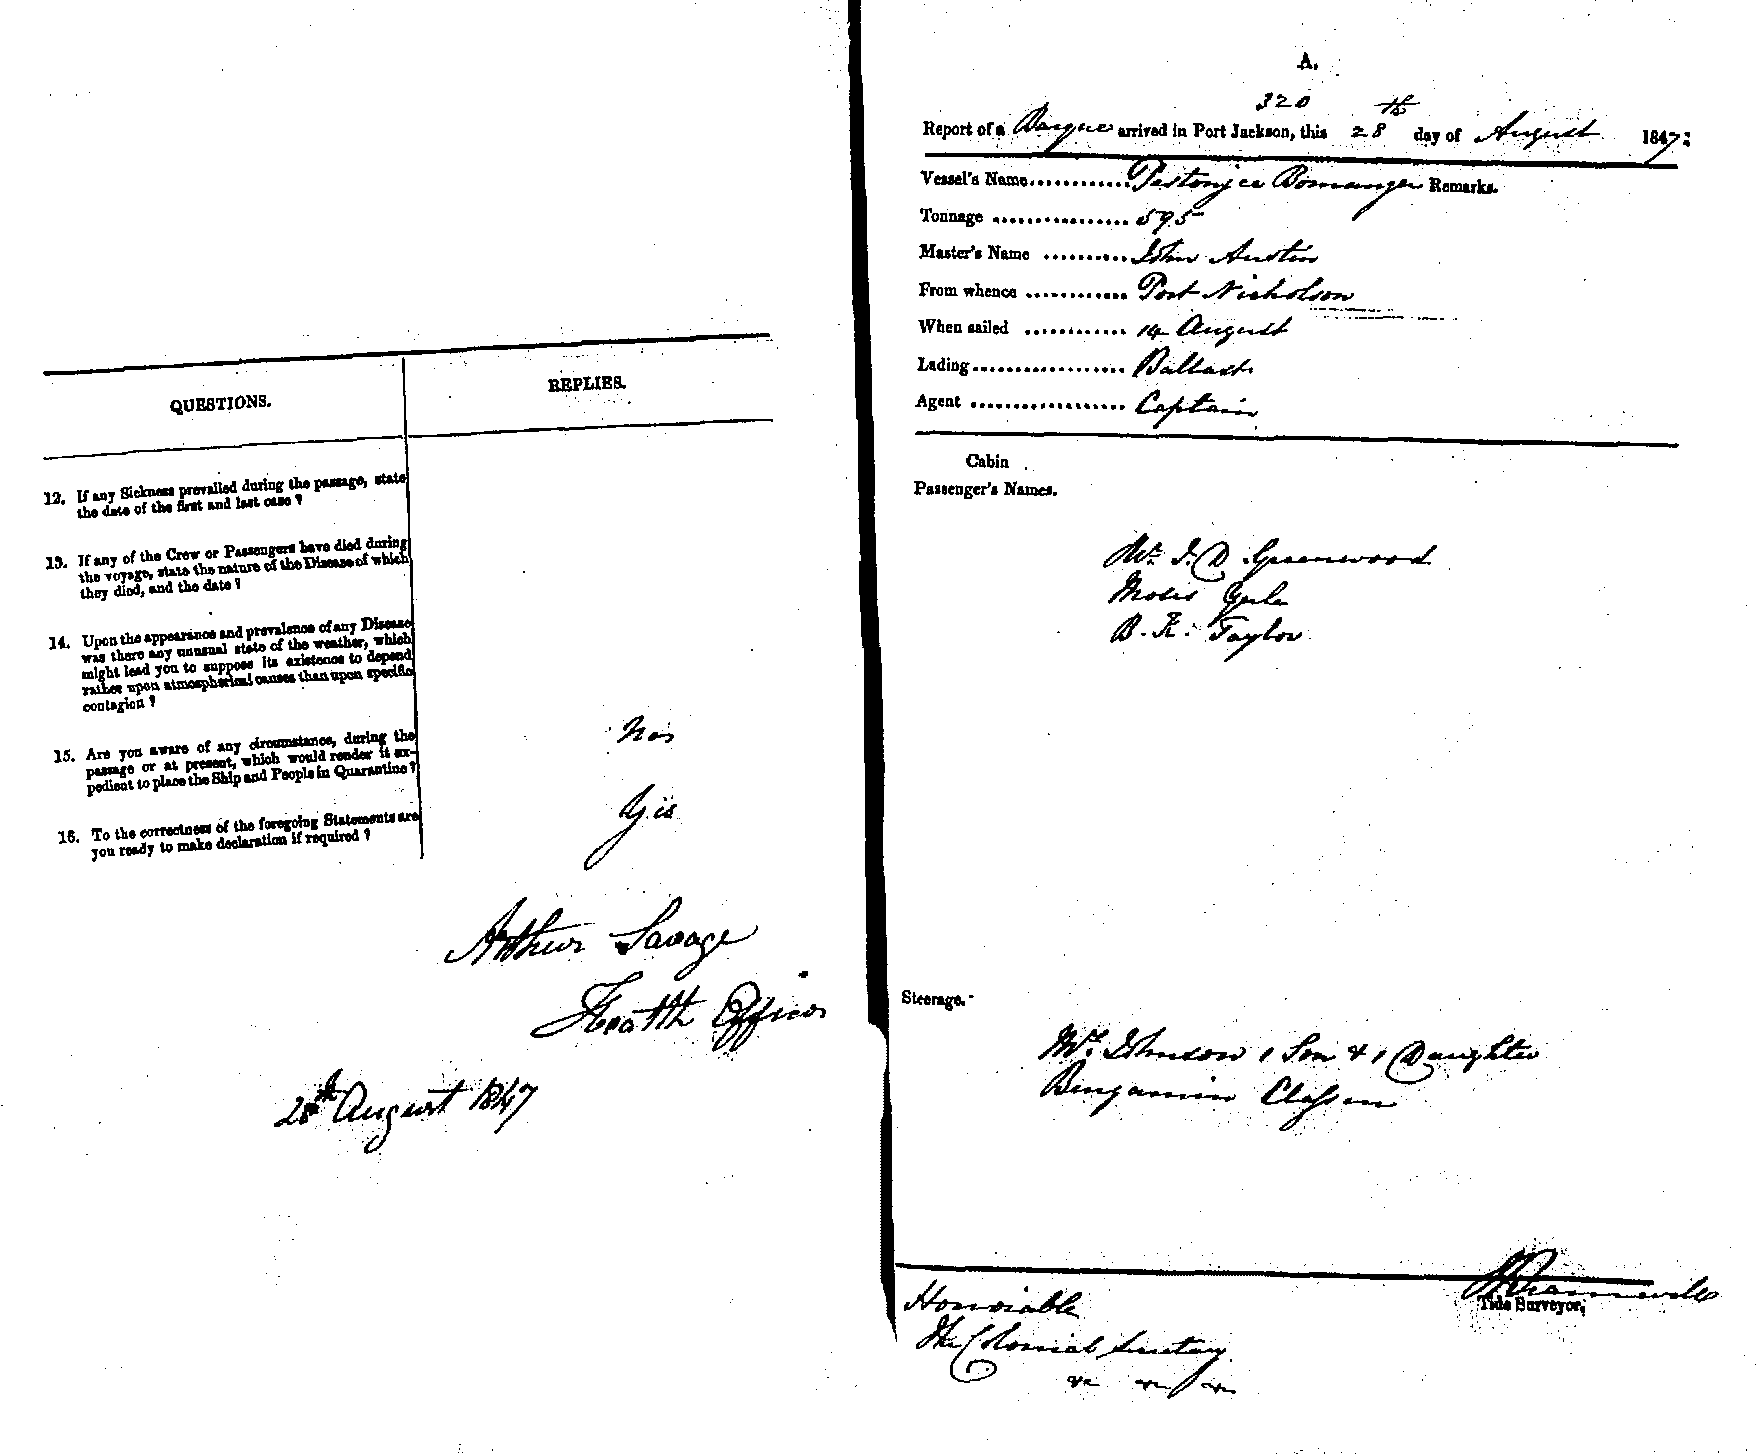 QUESTIONS.
REPLIES.
12. If any Sickness prevailed during the passage, state
the date of the first and last case ?
13. If any of the Crew or Passengers have died during
the voyage, state the nature of the Disease of which
they died, and the date ?
14. Upon the appearance and prevalence of any Disease
was there any unusual state of the weather, which
might lead you to suppose its existence to depend
rather upon atmospherical causes than upon specific
contagion ?
15. Are you aware of any circumstance, during the
passage or at present, which would render it ex-
pedient to place the Ship and People in Quarantine ?
16. To the correctness of the foregoing Statements are
you ready to make declaration if required ?
Yes
Arthur Savage
Health Officer
28th August 1847
A.
320
Report of a Barque arrived in Port Jackson, this 28th day of August 1847:
Vessel's Name............Pestonjee Bomanjee Remarks.
Tonnage ................ 595
Master's Name ..........John Austin
From whence ............ Port Nicholson
When sailed ............ 14 August
Lading.................. Ballast
Agent ................... Captain
Cabin
Passenger's Names.
Mr. J. D. Greenwood
Moses
B. K. Taylor
Steerage.
Johnson 1 Son & 1 Daughter
Benjamin
Tide Surveyor.
Honorable
The Colonial Secretary
&c &c &c